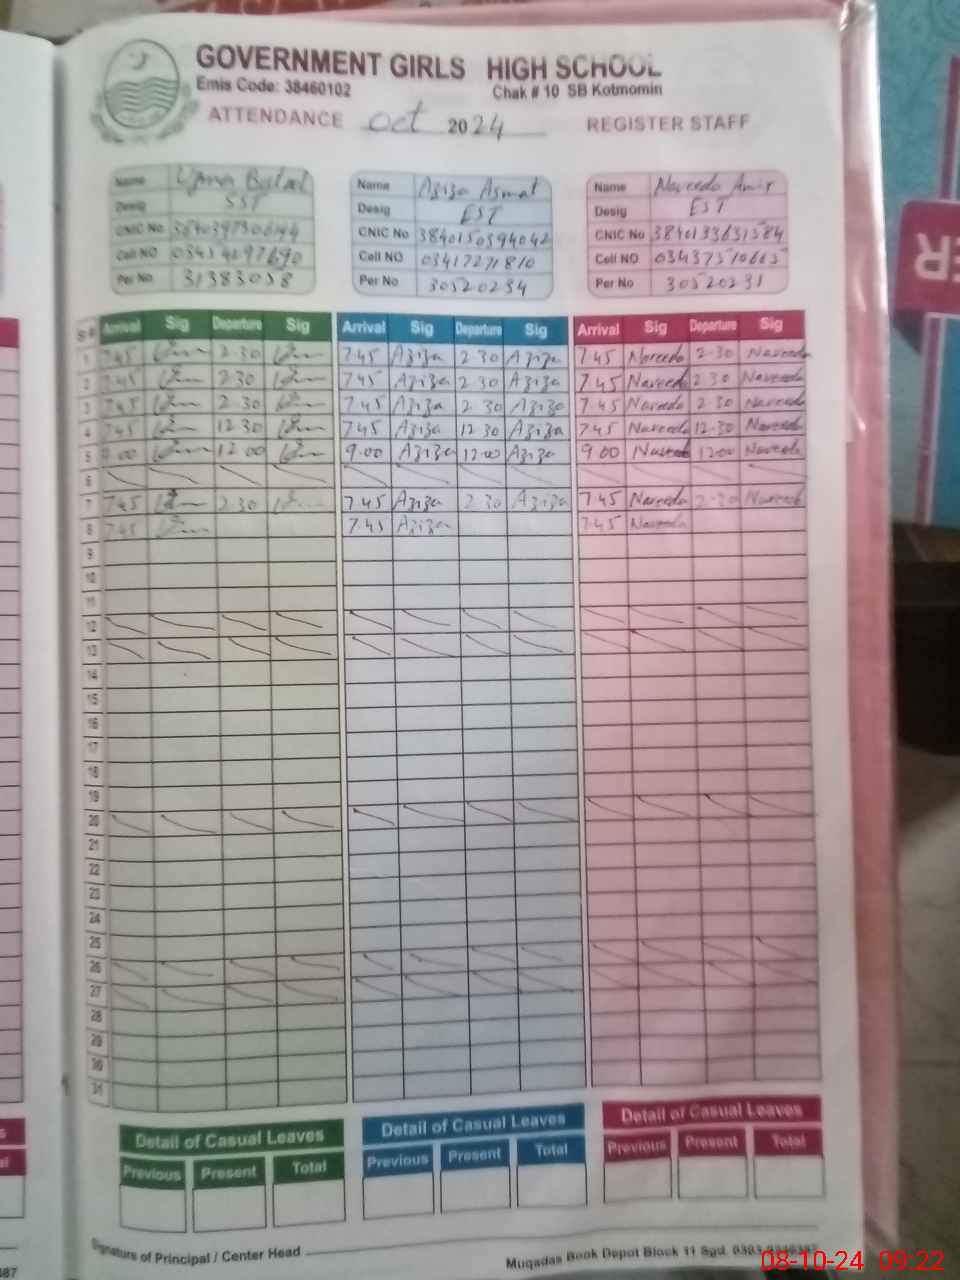 GOVERNMENT GIRLS HIGH SCHOOL
Emis Code: 38460102 Chak # 10 SB Kotmomin
ATTENDANCE Oct 2024 REGISTER STAFF
Name Name Aziza Asmat Name Naveeda Amir
Desig SST Desig EST Desig EST
CNIC No CNIC No 3840150394042 CNIC No 3840133631584
Cell NO 03454097690 Cell NO 03417271810 Cell NO
Per No 31383058 Per No 30520234 Per No 30520231
S # Arrival Sig Departure Sig Arrival Sig Departure Sig Arrival Sig Departure Sig
1 7.45 2.30 7.45 Aziza 2.30 Aziza 7.45 Naveeda 2.30 Naveeda
2 7.45 2.30 7.45 Aziza 2.30 Aziza 7.45 Naveeda 2.30 Naveeda
3 7.45 2.30 7.45 Aziza 2.30 Aziza 7.45 Naveeda 2.30 Naveeda
4 7.45 12.30 7.45 Aziza 12.30 Aziza 7.45 Naveeda 12.30 Naveeda
5 9.00 12.00 9.00 Aziza 12.00 Aziza 9.00 Naveeda 12.00 Naveeda
6
7 7.45 2.30 7.45 Aziza 2.30 Aziza 7.45 Naveeda 2.30 Naveeda
8 7.45 7.45 Aziza 7.45 Naveeda
9
10
11
12
13
14
15
16
17
18
19
20
21
22
23
24
25
26
27
28
29
30
31
Detail of Casual Leaves Detail of Casual Leaves Detail of Casual Leaves
Previous Present Total Previous Present Total Previous Present Total
Signature of Principal / Center Head
Muqadas Book Depot Block 11 Sgd.
08-10-24 09:22